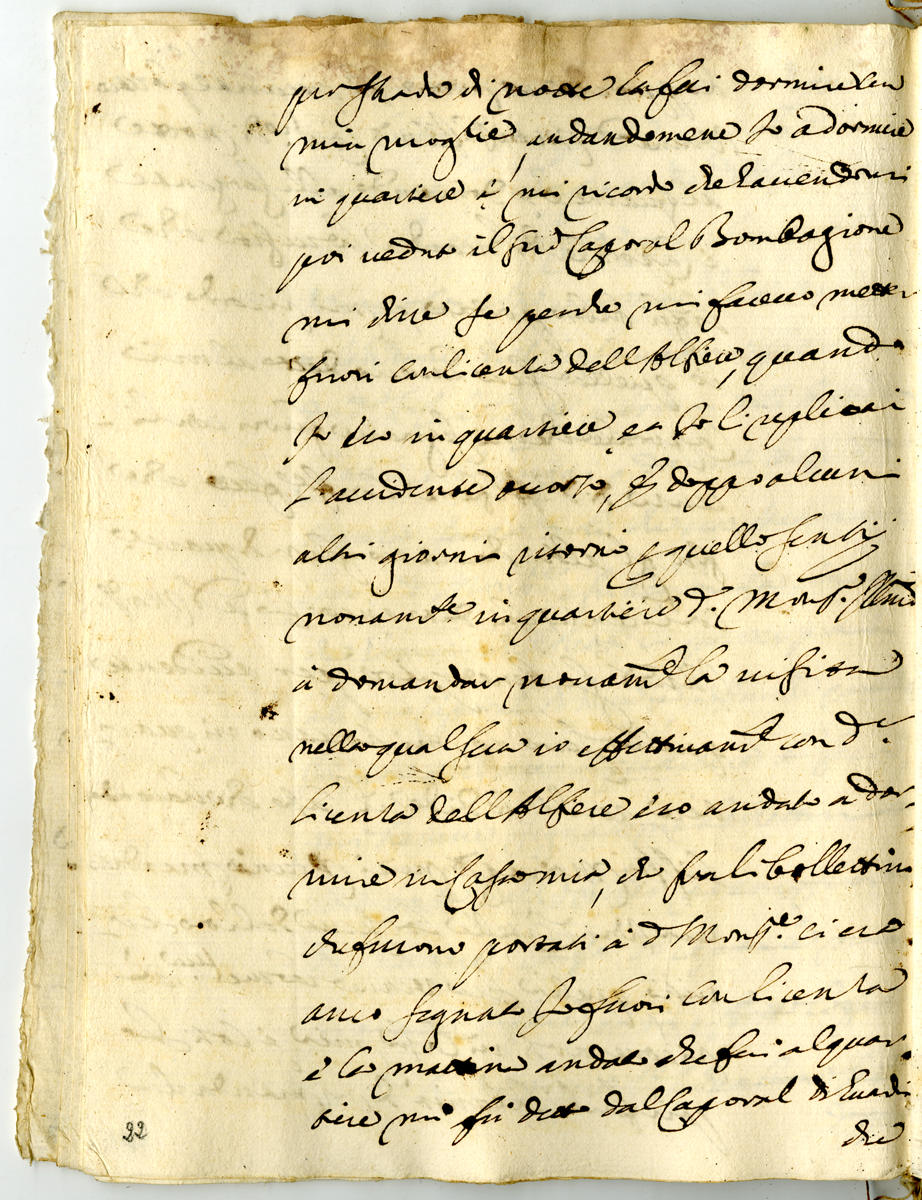 per strada di notte la feci dormire con
mia moglie, andandomene Io à dormire
in quartiere è mi ricordo che havendomi
poi veduto il sud.º Caporal Bombagione
mi disse se perche mi facevo metter
fuori con licenza dell'Alfiere, quando
Io ero in quartiere, et Io li replicai
l'accidente occorso, e doppo alcuni
altri giorni ritornò quello
novam.te in quartiere d.º Mons.re
à domandar novam.te la visita
nella qual sera io effettivam.te con d.ª
licenza dell'Alfiere ero andato à dor-
mire in Casa mia, che fra li bollettini
che furono portati à d.º Mons.re ci era
anco segnato Io fuori con licenza
è la mattina andato che fui al quar-
tiere mi fù detto dal Caporal di
che
22